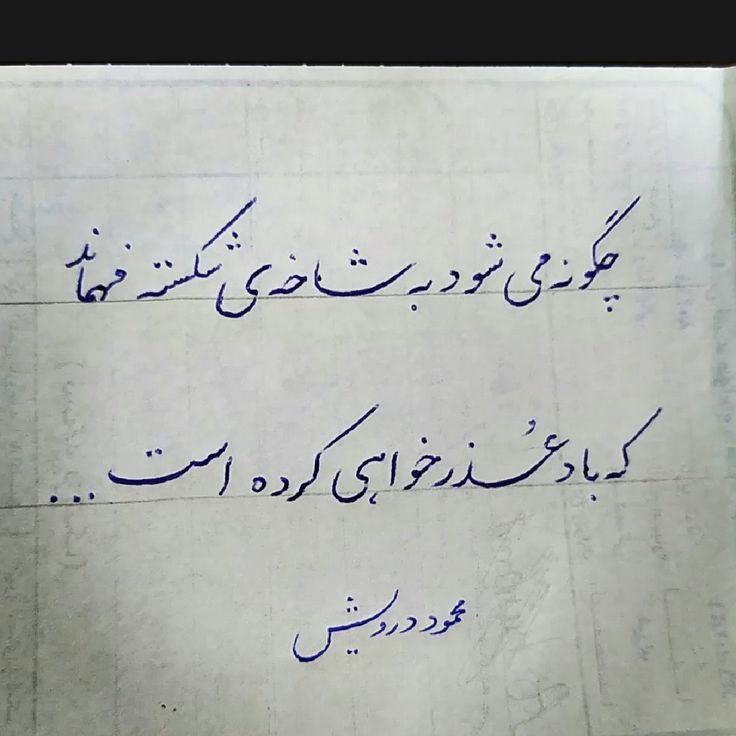 چگونه می شود به شاخه ی شکسته فهماند
که باد عُذرخواهی کرده است...
محمود درویش